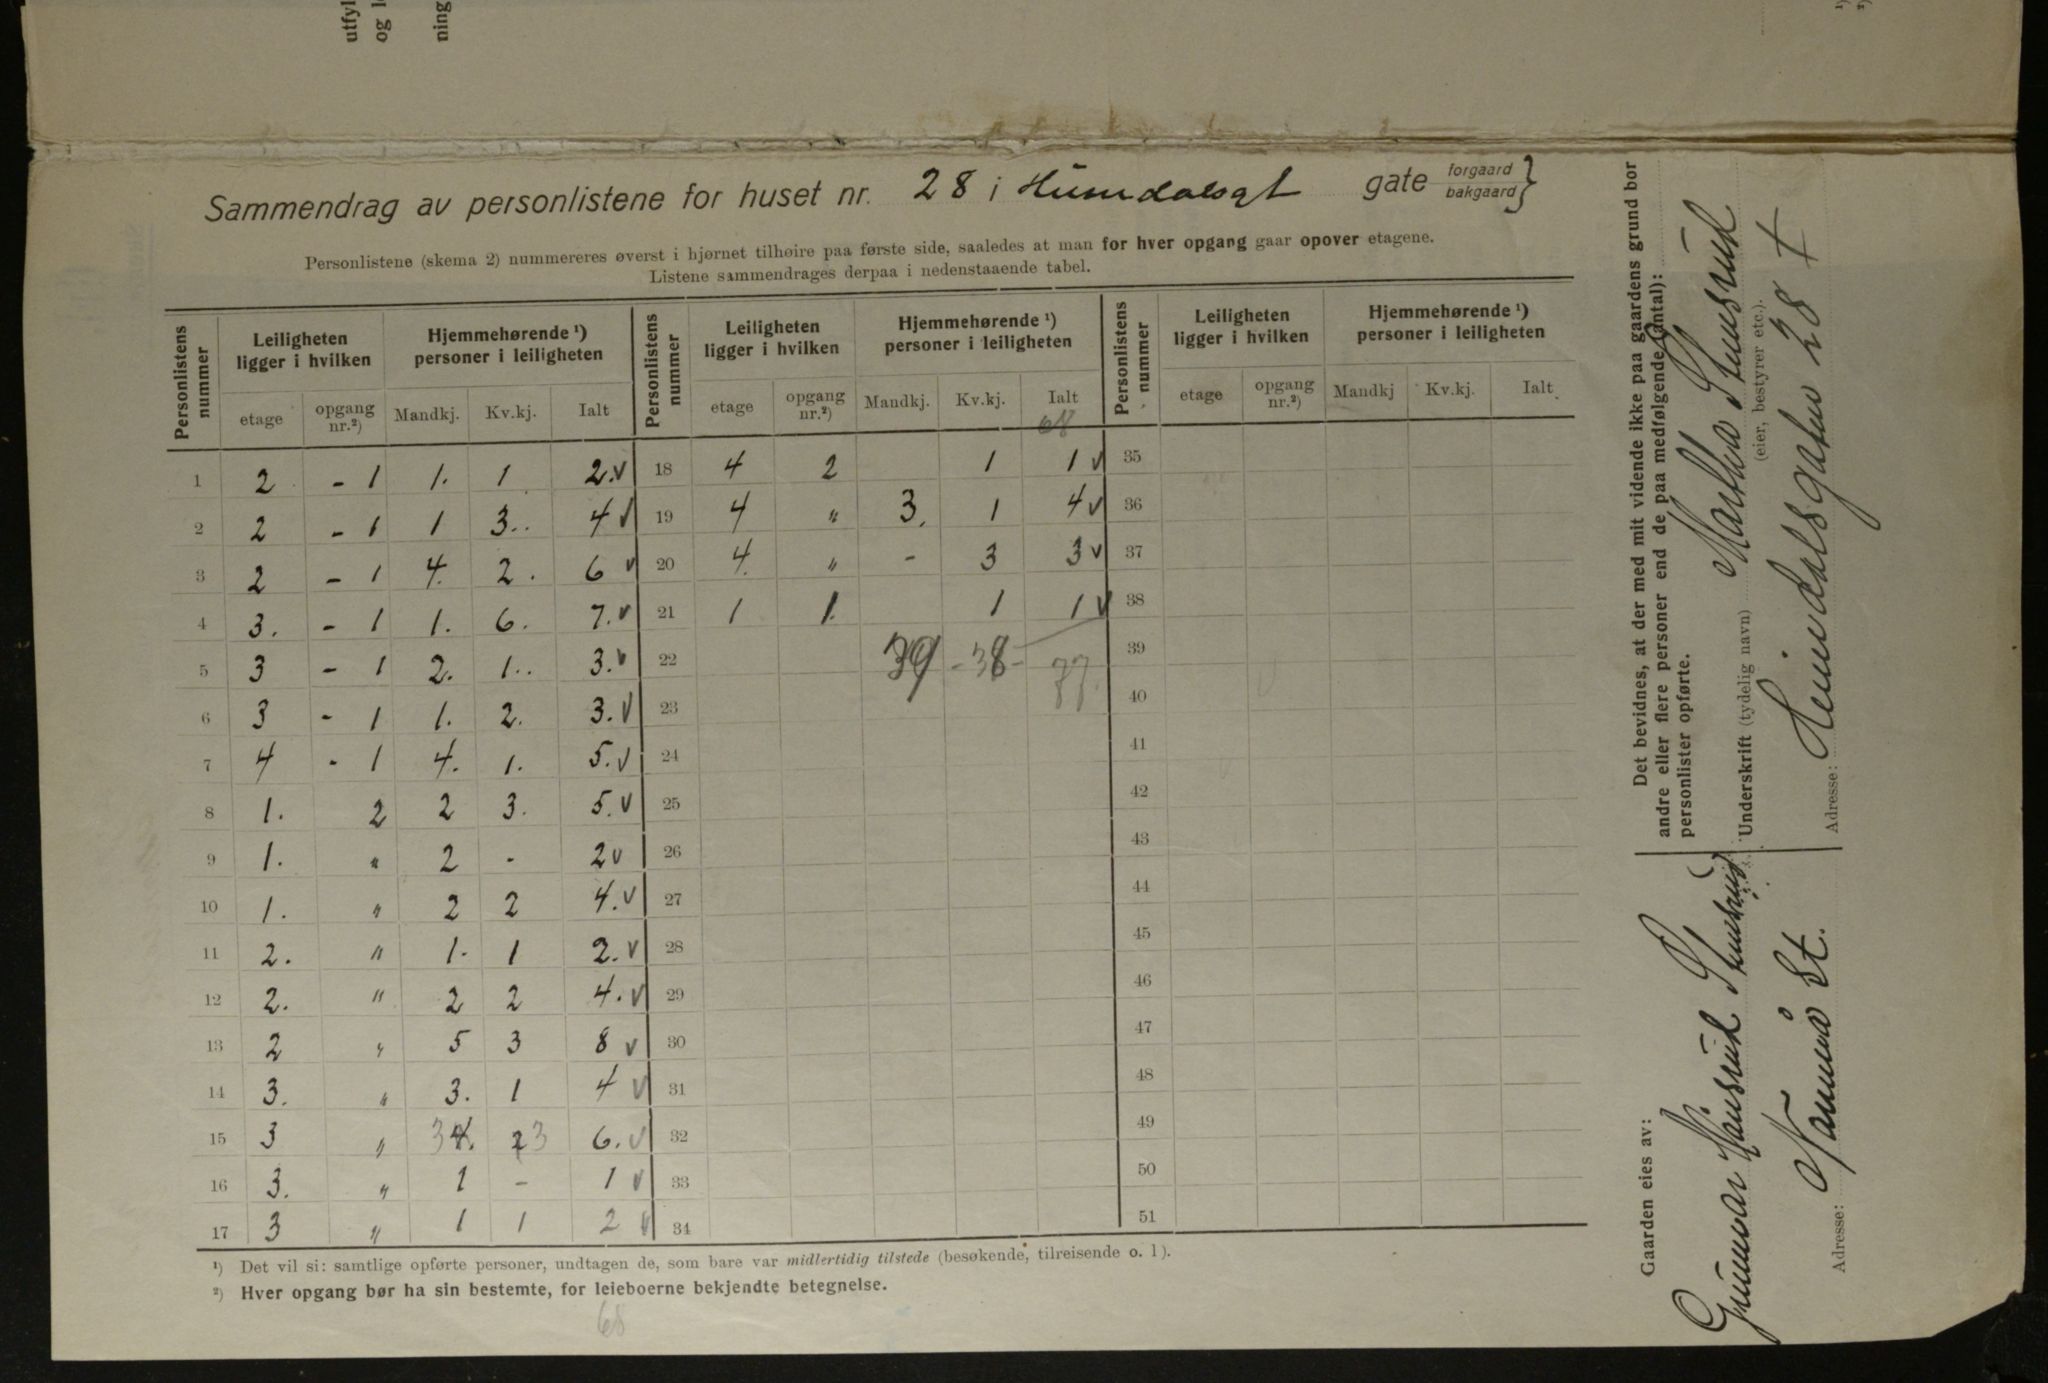 utfyl
og l
ning
1)
2)
Sammendrag av personlistene for huset nr. 28 i Heimdalsgt gate forgaard bakgaard }
Personlistene (skema 2) nummereres øverst i hjørnet tilhøire paa første side, saaledes at man for hver opgang gaar opover etagene.
Listene sammendrages derpaa i nedenstaaende tabel.
Personlistens nummer | Leiligheten ligger i hvilken | Hjemmehørende ¹) personer i leiligheten | Personlistens nummer | Leiligheten ligger i hvilken | Hjemmehørende ¹) personer i leiligheten | Personlistens nummer | Leiligheten ligger i hvilken | Hjemmehørende ¹) personer i leiligheten
etage | opgang nr.²) | Mandkj. | Kv.kj. | Ialt | etage | opgang nr.²) | Mandkj. | Kv.kj. | Ialt | etage | opgang nr.²) | Mandkj | Kv.kj. | Ialt
68
1 2 - 1 1. 1 2.v 18 4 2 1 1 v 35
2 2 - 1 1 3.. 4 v 19 4 " 3. 1 4v 36
3 2 - 1 4. 2. 6 v 20 4. " - 3 3 v 37
4 3. - 1 1. 6. 7.v 21 1 1. 1 1 v 38
5 3 - 1 2. 1.. 3.v 22 39 - 38 - 77. 39
6 3 - 1 1. 2. 3.v 23 40
7 4 - 1 4. 1. 5.v 24 41
8 1. 2 2 3. 5.v 25 42
9 1. " 2 - 2v 26 43
10 1. " 2 2 4.v 27 44
11 2. " 1. 1 2.v 28 45
12 2. " 2 2 4.v 29 46
13 2 " 5 3 8 v 30 47
14 3. " 3. 1 4 v 31 48
15 3 " 3 4. 2 3 6.v 32 49
16 3. " 1 - 1 v 33 50
17 3 " 1 1 2 v 34 51
¹) Det vil si: samtlige opførte personer, undtagen de, som bare var midlertidig tilstede (besøkende, tilreisende o. l).
²) Hver opgang bør ha sin bestemte, for leieboerne bekjendte betegnelse.
68
Det bevidnes, at der med mit vidende ikke paa gaardens grund bor
andre eller flere personer end de paa medfølgende (antal):
personlister opførte.
Underskrift (tydelig navn) Martha Stensrud
(eier, bestyrer etc.).
Adresse: Heimdalsgaten 28 +
Gaarden eies av:
Gunnar Stensrud
Adresse: St.